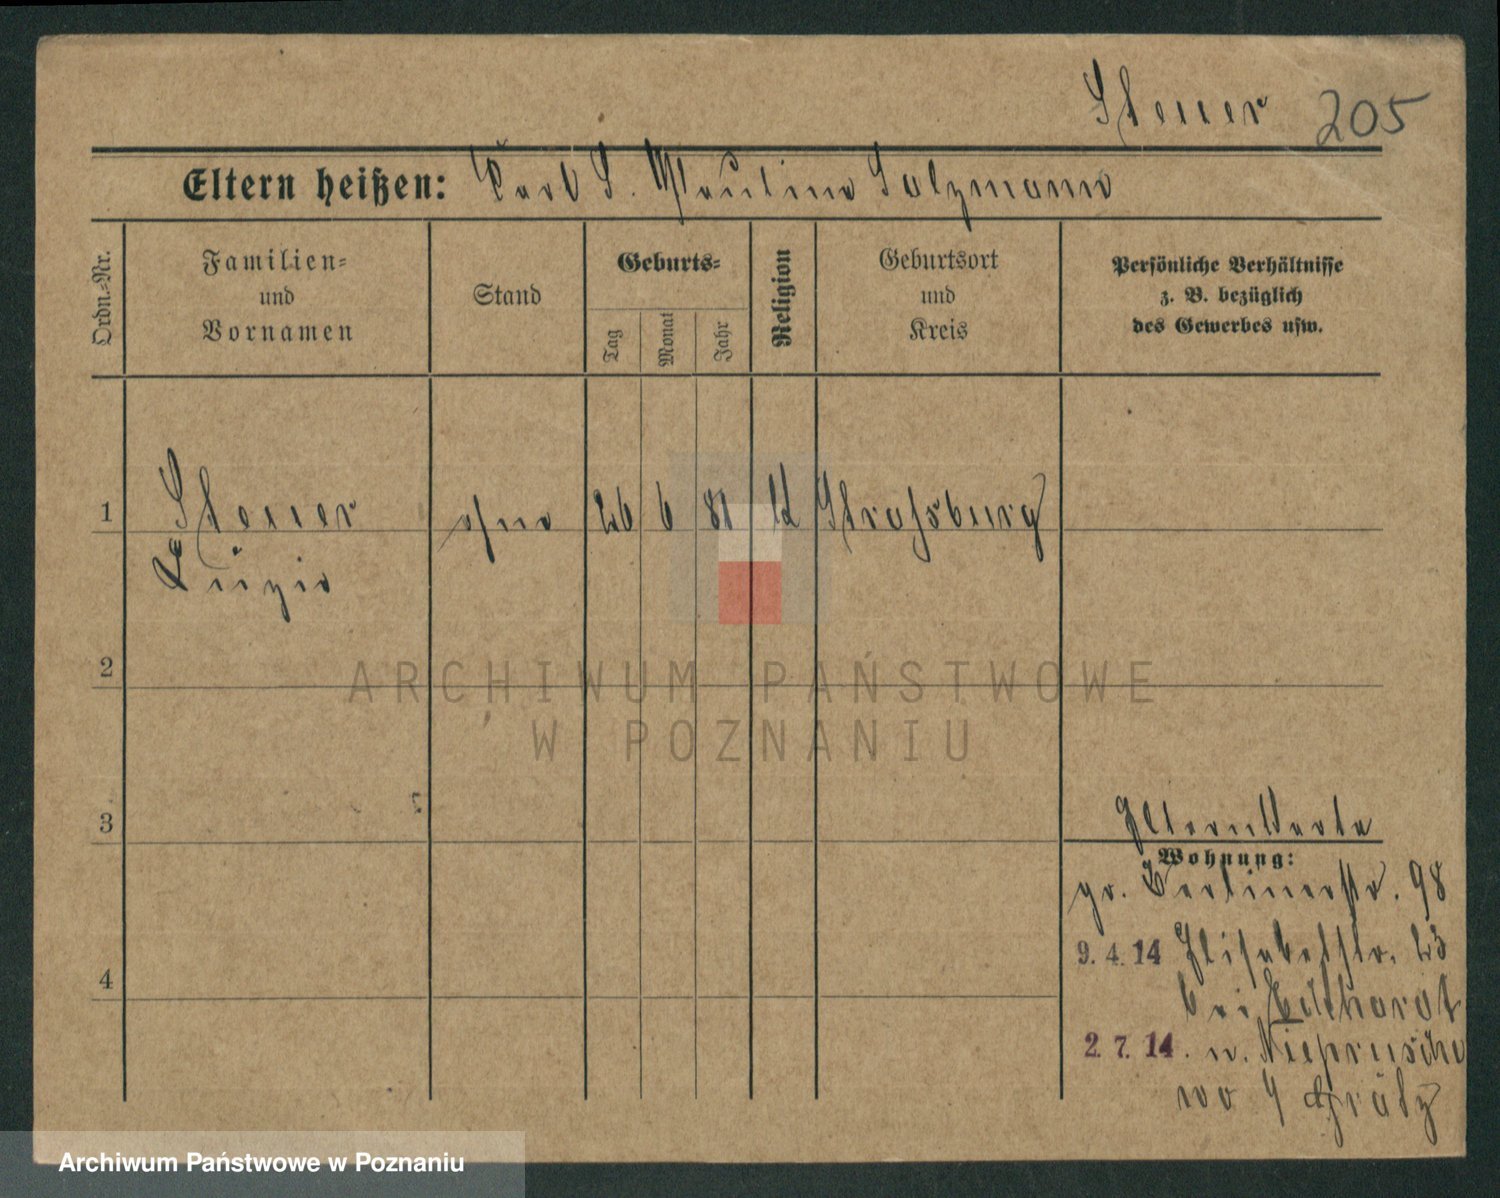 Steuer 205
Eltern heißen: Karl S. Pauline Salzmann
Ordn.-Nr.
Familien-
und
Vornamen
Stand
Geburts-
Tag
Monat
Jahr
Religion
Geburtsort
und
Kreis
Persönliche Verhältnisse
z. B. bezüglich
des Gewerbes usw.
1
Steuer
Luzie
ohne
26
6
81
Strassburg
2
3
4
Elternkarte
Wohnung:
gr. Berlinerstr. 98
9. 4. 14 Elisabethstr. 23
bei Eckhardt
2. 7. 14. n.
Grätz
ARCHIWUM PAŃSTWOWE
W POZNANIU
Archiwum Państwowe w Poznaniu